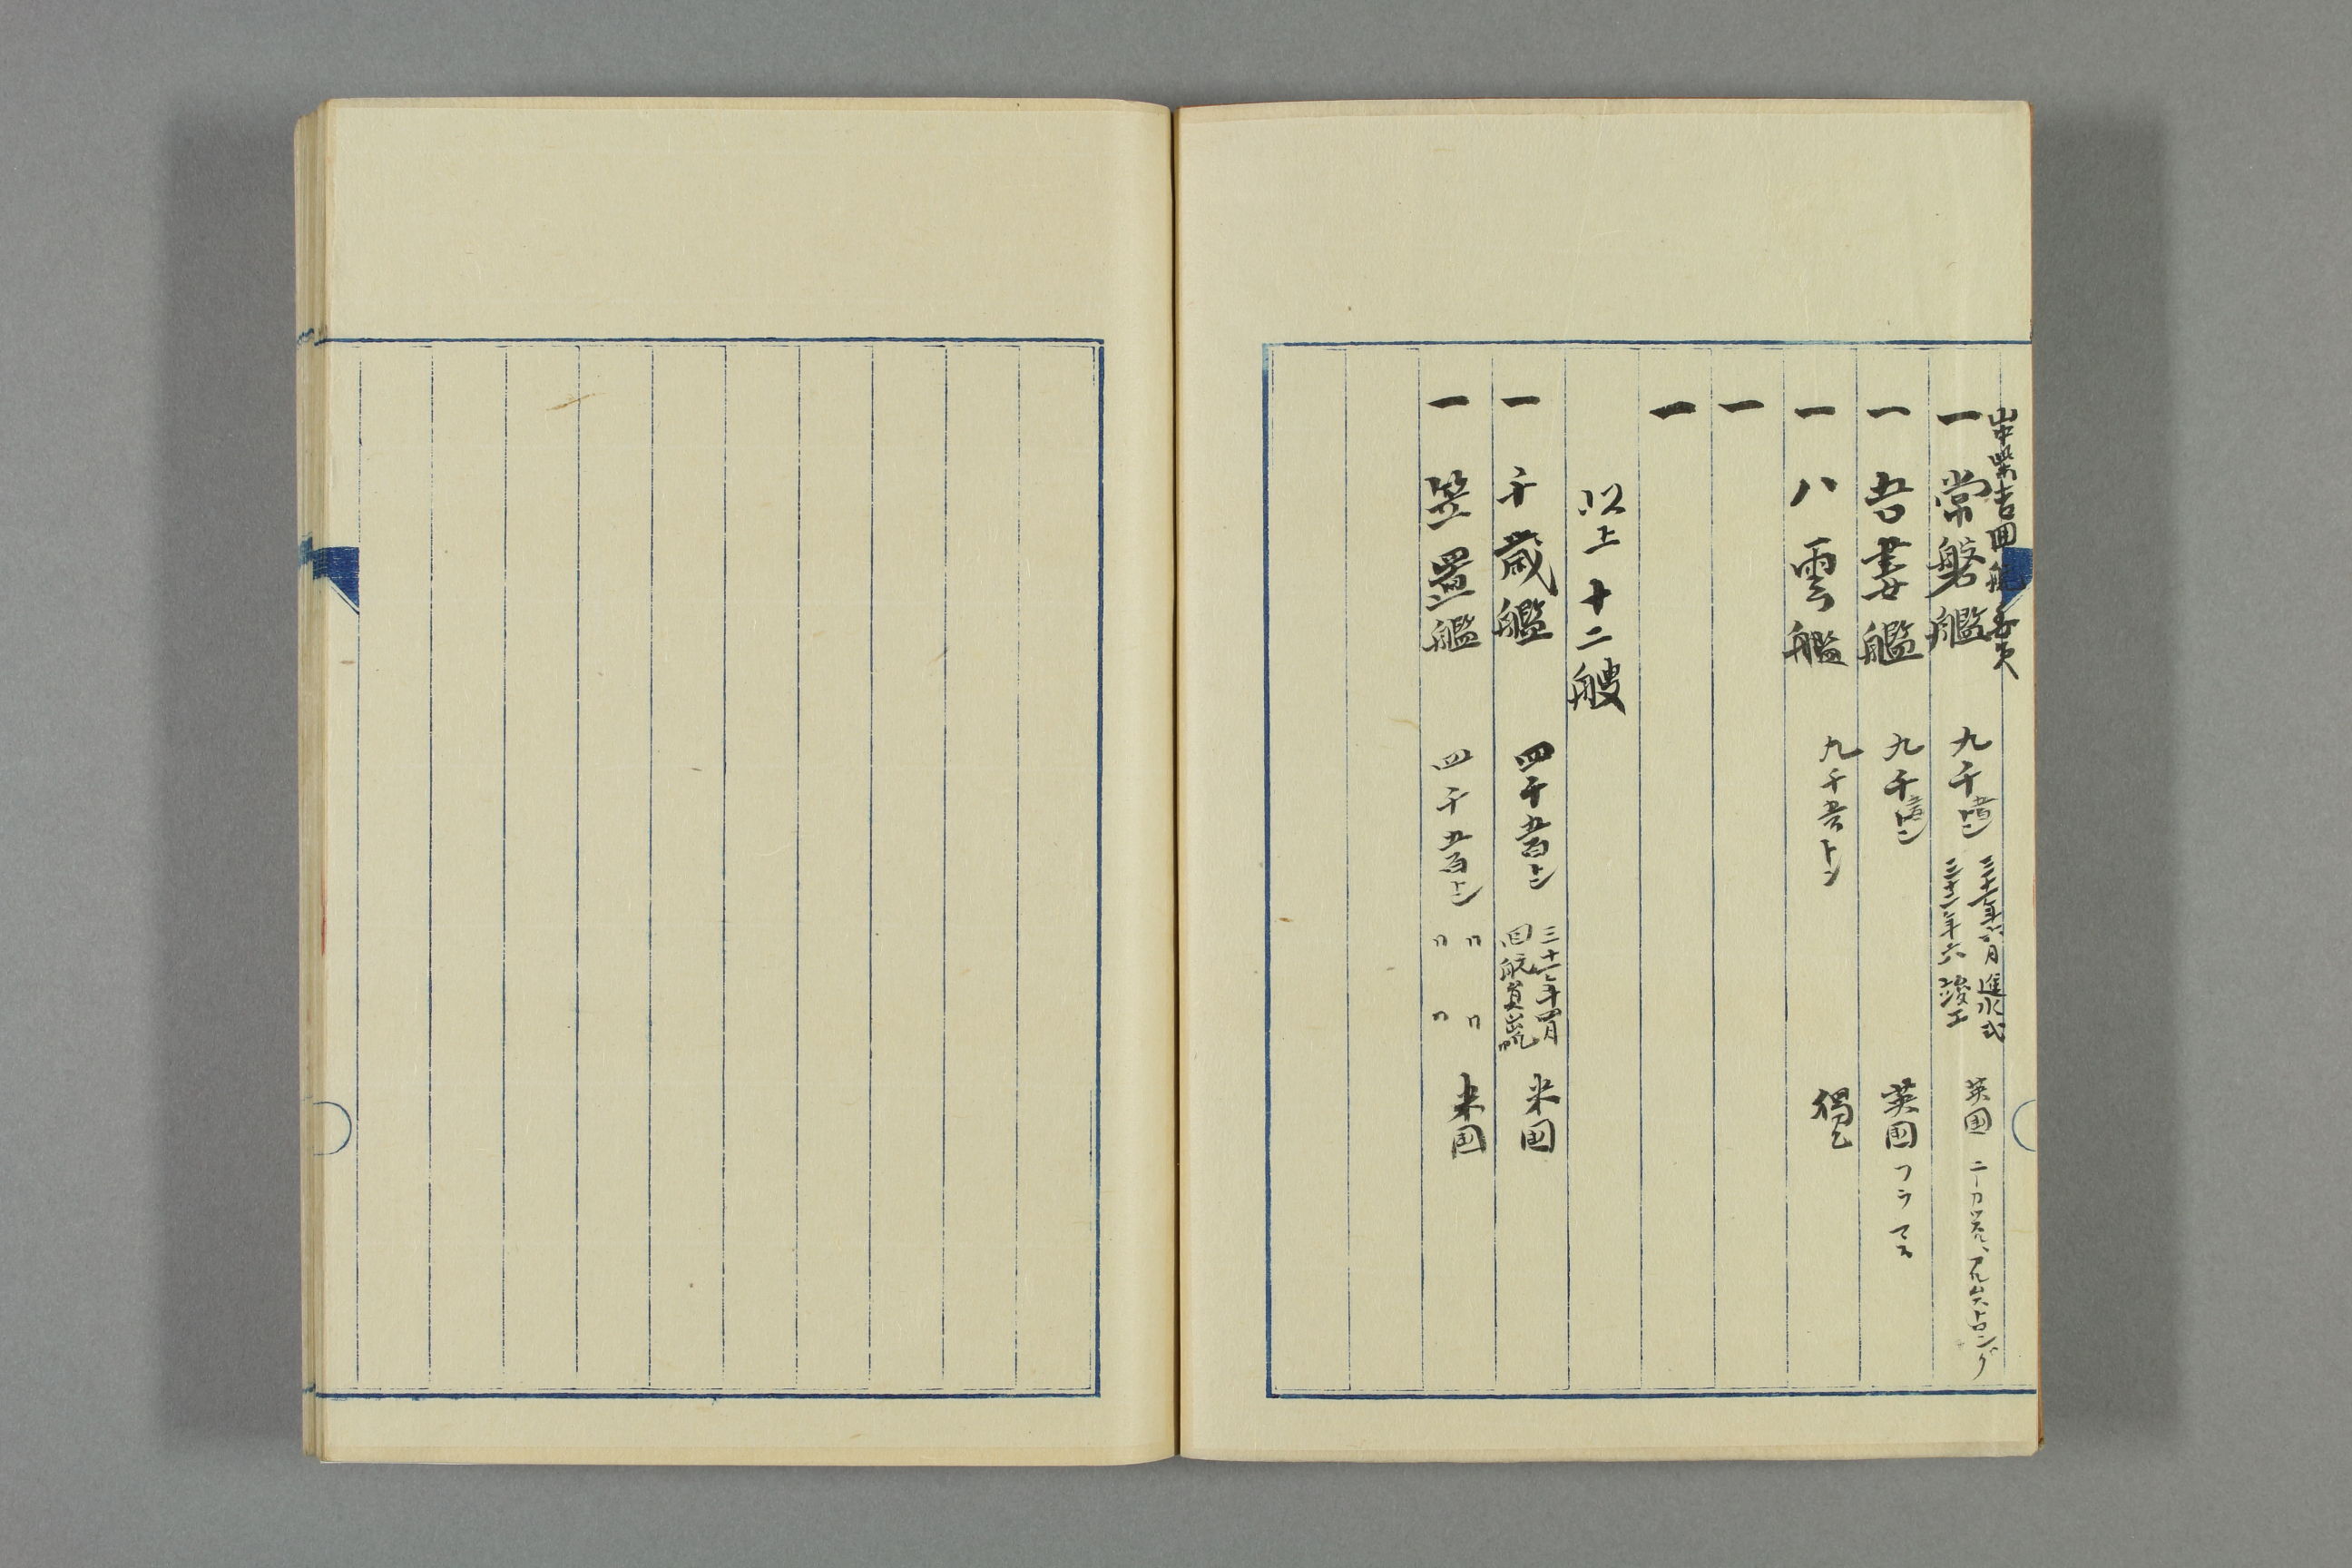 山中柴吉回航委員
一 常磐艦 九千五百トン 三十一年六月進水式 三十二年六竣工 英国 ニーカツスル、アルムストロング
一 吾妻艦 九千五百トン 英国 フラマス
一 八雲艦 九千五百トン 独乙
一
一
以上十二艘
一 千歳艦 四千五百トン 三十一年四月 回航員出帆 米国
一 笠置艦 四千五百トン 〃 〃 〃 〃 米国